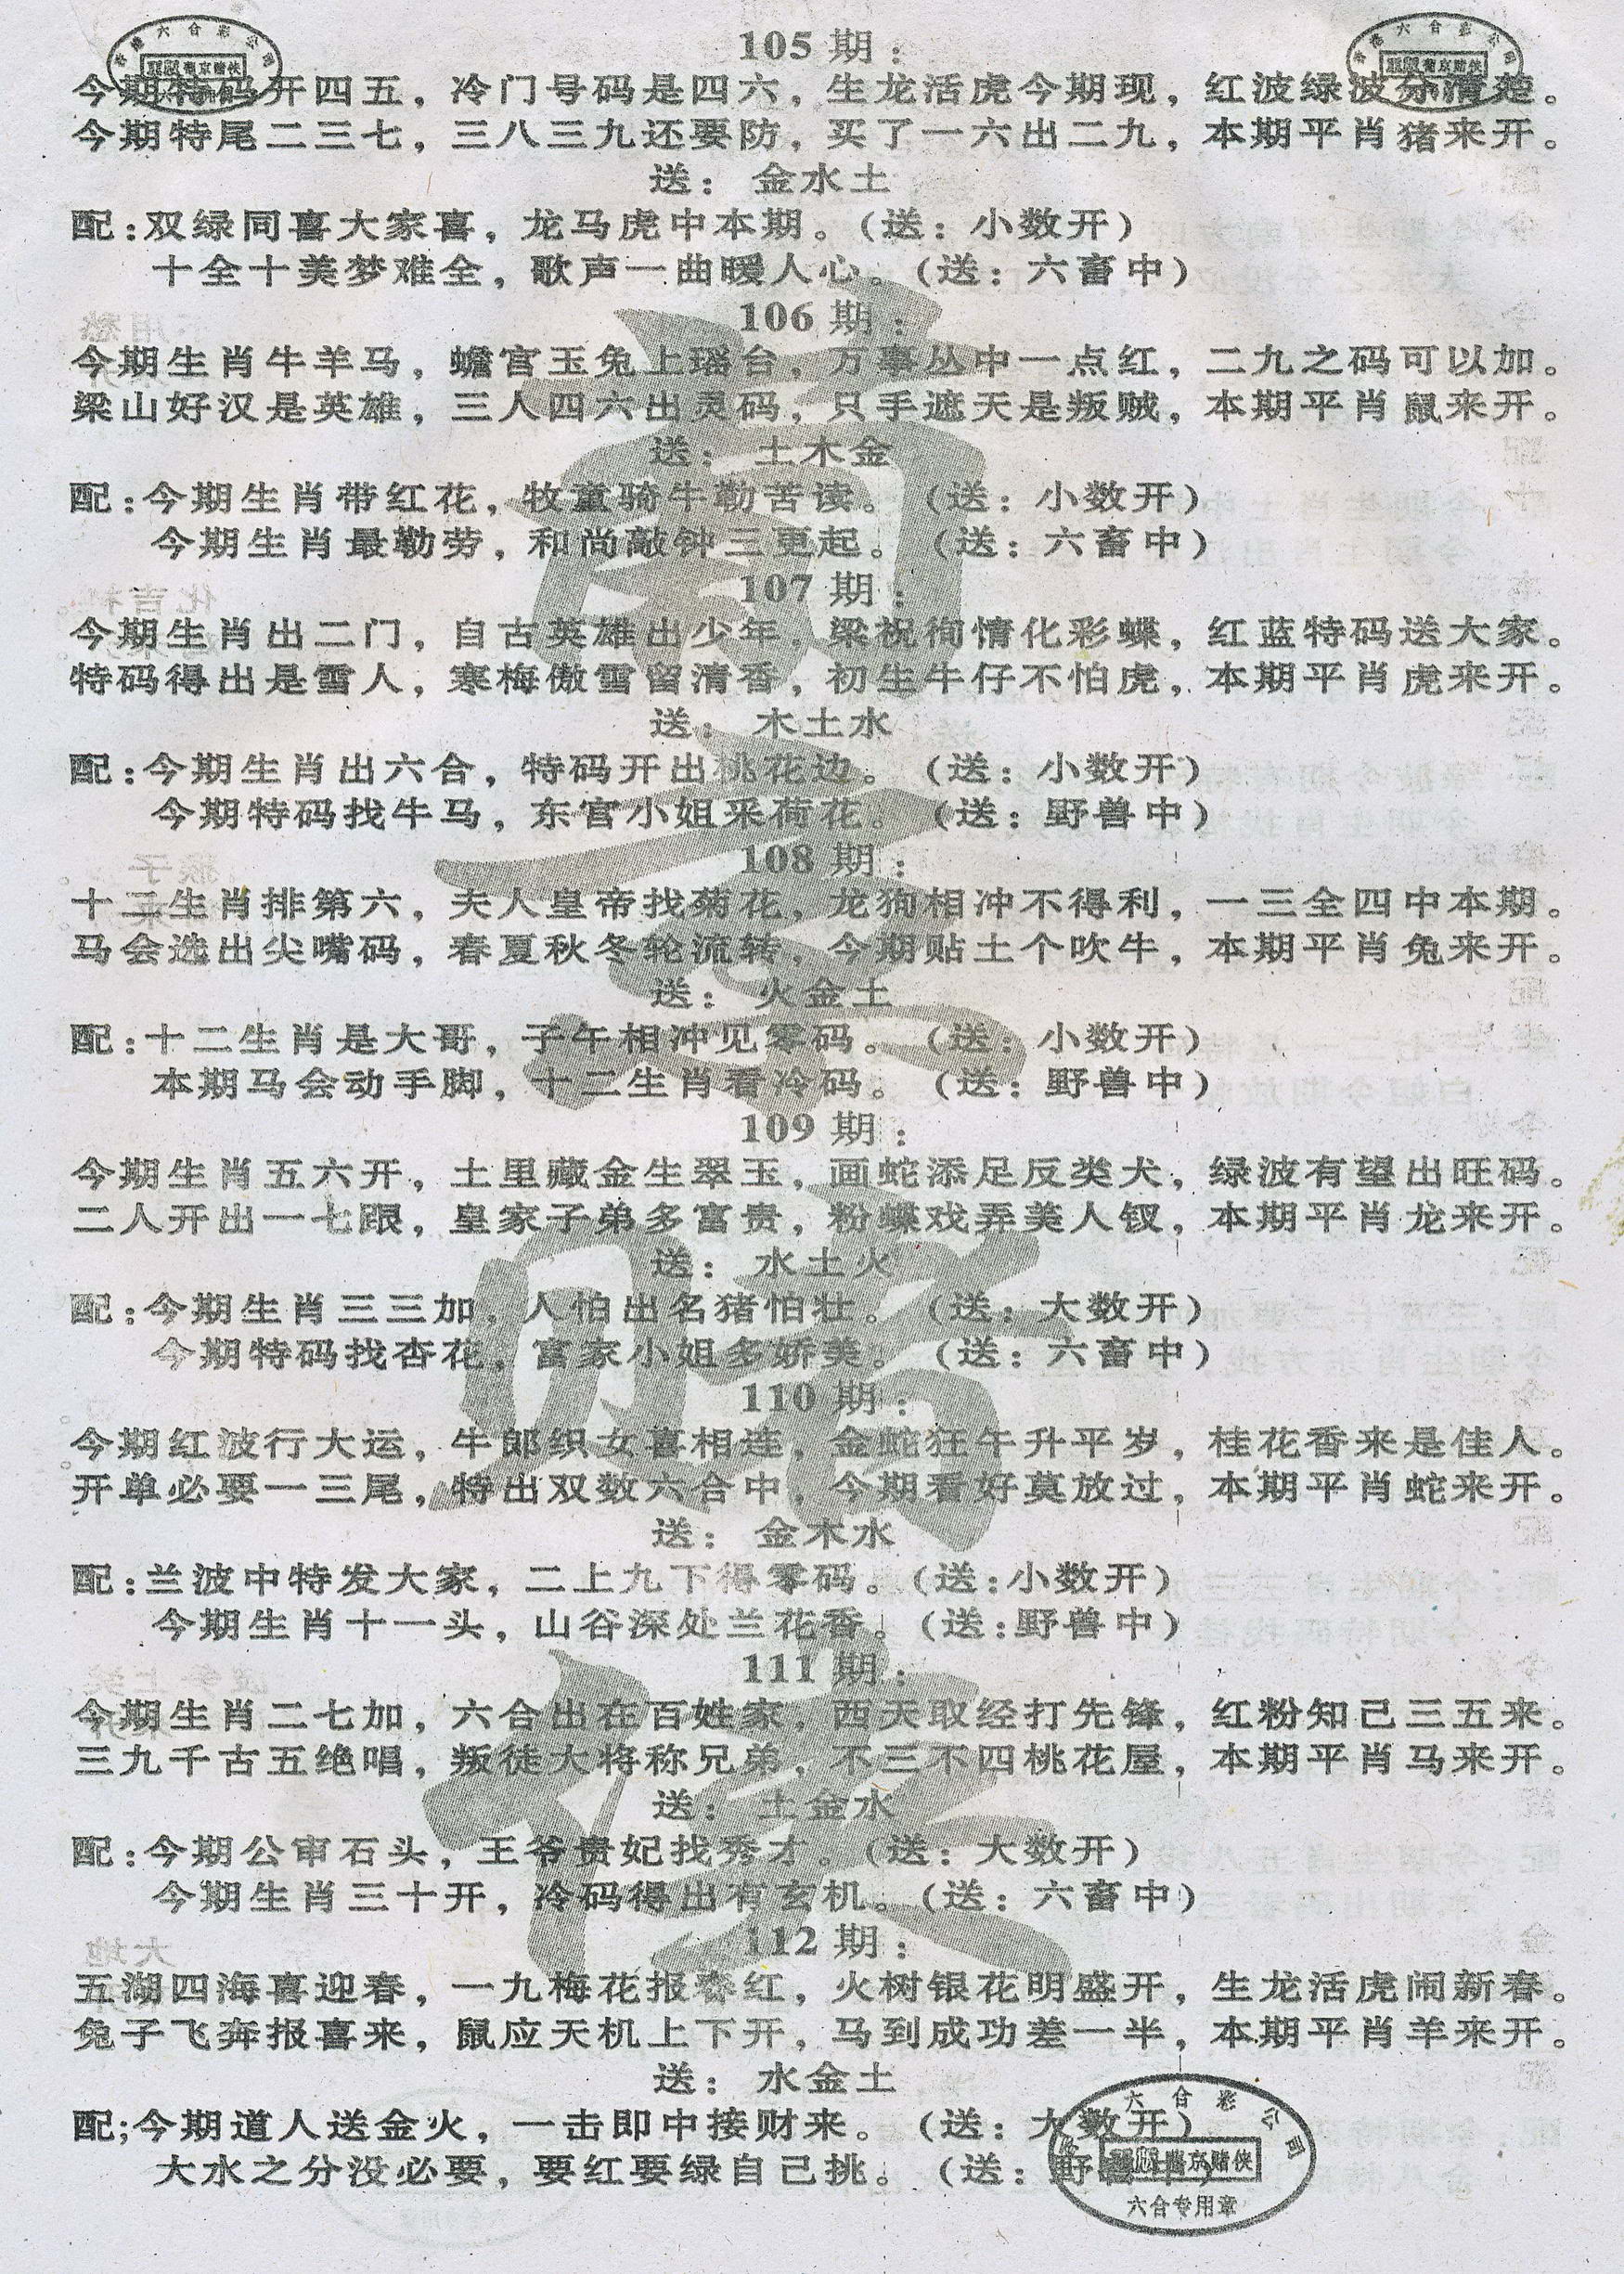 105期：
今期特码开四五，冷门号码是四六，生龙活虎今期现，红波绿波分清楚。
今期特尾二三七，三八三九还要防，买了一六出二九，本期平肖猪来开。
送：金水土
配：双绿同喜大家喜，龙马虎中本期。（送：小数开）
十全十美梦难全，歌声一曲暖人心。（送：六畜中）
106期：
今期生肖牛羊马，蟾宫玉兔上瑶台，万事丛中一点红，二九之码可以加。
梁山好汉是英雄，三人四六出灵码，只手遮天是叛贼，本期平肖鼠来开。
送：土木金
配：今期生肖带红花，牧童骑牛勤苦读。（送：小数开）
今期生肖最勤劳，和尚敲钟三更起。（送：六畜中）
107期：
今期生肖出二门，自古英雄出少年，梁祝徇情化彩蝶，红蓝特码送大家。
特码得出是雪人，寒梅傲雪留清香，初生牛仔不怕虎，本期平肖虎来开。
送：木土水
配：今期生肖出六合，特码开出桃花边。（送：小数开）
今期特码找牛马，东宫小姐采荷花。（送：野兽中）
108期：
十二生肖排第六，夫人皇帝找菊花，龙狗相冲不得利，一三全四中本期。
马会选出尖嘴码，春夏秋冬轮流转，今期贴土个吹牛，本期平肖兔来开。
送：火金土
配：十二生肖是大哥，子午相冲见零码。（送：小数开）
本期马会动手脚，十二生肖看冷码。（送：野兽中）
109期：
今期生肖五六开，土里藏金生翠玉，画蛇添足反类犬，绿波有望出旺码。
二人开出一七跟，皇家子弟多富贵，粉蝶戏弄美人钗，本期平肖龙来开。
送：水土火
配：今期生肖三三加，人怕出名猪怕壮。（送：大数开）
今期特码找杏花，富家小姐多娇美。（送：六畜中）
110期：
今期红波行大运，牛郎织女喜相连，金蛇狂午升平岁，桂花香来是佳人。
开单必要一三尾，特出双数六合中，今期看好莫放过，本期平肖蛇来开。
送：金木水
配：兰波中特发大家，二上九下得零码。（送：小数开）
今期生肖十一头，山谷深处兰花香。（送：野兽中）
111期：
今期生肖二七加，六合出在百姓家，西天取经打先锋，红粉知己三五来。
三九千古五绝唱，叛徒大将称兄弟，不三不四桃花屋，本期平肖马来开。
送：土金水
配：今期公审石头，王爷贵妃找秀才。（送：大数开）
今期生肖三十开，冷码得出有玄机。（送：六畜中）
112期：
五湖四海喜迎春，一九梅花报春红，火树银花明盛开，生龙活虎闹新春。
兔子飞奔报喜来，鼠应天机上下开，马到成功差一半，本期平肖羊来开。
送：水金土
配；今期道人送金火，一击即中接财来。（送：大数开）
大水之分没必要，要红要绿自己挑。（送：野兽中）
六合彩公司
葡京赌侠
六合专用章